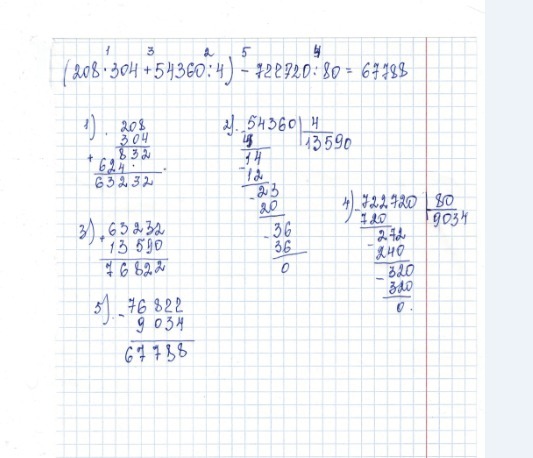 1 3 2 5 4
(208·304+54360:4)-722720:80=67788
1). 208
304
+ 832
624·
63232
2). -54360 | 4
4 13590
-14
12
-23
20
-36
36
0
3) +63232
13590
76822
4) -722720 | 80
720 9034
-272
240
-320
320
0.
5). -76822
9034
67788